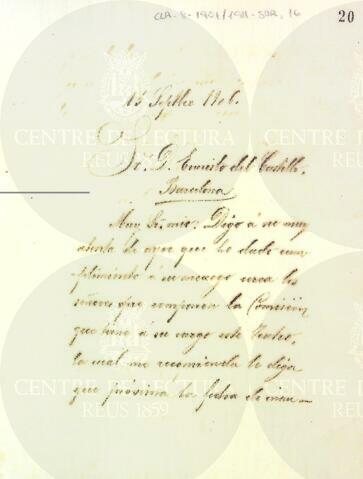 CLR-8-1901/1911-SOR, 16
20
15 Septbre 1906.
Sr. D. Ernesto del Castillo.
Barcelona
Muy Sr. mio: Digo á su muy
atenta de ayer que he dado cum
plimiento á su encargo cerca los
señores que componen la Comisión
que tiene á su cargo este Teatro,
la cual me recomienda le diga
que próxima la fecha de inau-
CENTRE DE LECTURA
REUS 1859
CENTRE DE LECTURA
REUS 1859